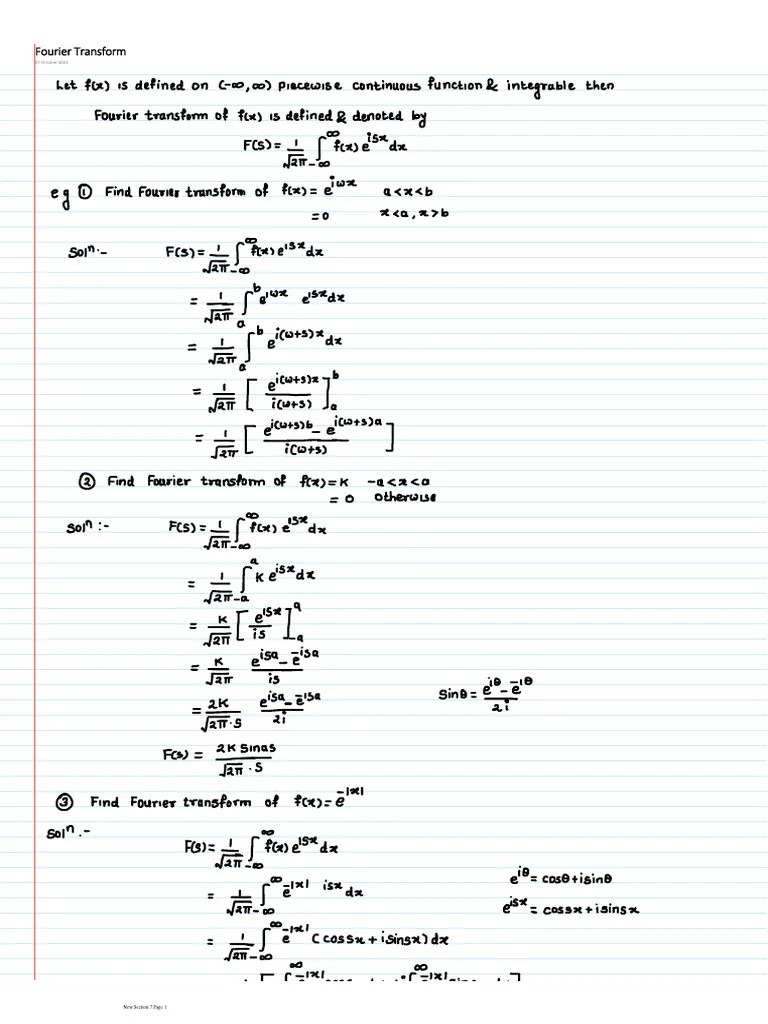 Fourier Transform
Let f(x) is defined on (-∞,∞) piecewise continuous function & integrable then
Fourier transform of f(x) is defined & denoted by
F(s) = 1/√2π ∫_{-∞}^{∞} f(x) e^{isx} dx
eg ① Find Fourier transform of f(x) = e^{iωx} a<x<b
= 0 x<a, x>b
Solⁿ.- F(s) = 1/√2π ∫_{-∞}^{∞} f(x) e^{isx} dx
= 1/√2π ∫_{a}^{b} e^{iωx} e^{isx} dx
= 1/√2π ∫_{a}^{b} e^{i(ω+s)x} dx
= 1/√2π [ e^{i(ω+s)x} / i(ω+s) ]_{a}^{b}
= 1/√2π [ e^{i(ω+s)b} - e^{i(ω+s)a} / i(ω+s) ]
② Find Fourier transform of f(x) = K -a<x<a
= 0 otherwise
Solⁿ :- F(s) = 1/√2π ∫_{-∞}^{∞} f(x) e^{isx} dx
= 1/√2π ∫_{-a}^{a} K e^{isx} dx
= K/√2π [ e^{isx} / is ]_{-a}^{a}
= K/√2π e^{isa} - e^{-isa} / is
= 2K/√2π·s e^{isa} - e^{-isa} / 2i Sinθ = e^{iθ} - e^{-iθ} / 2i
F(s) = 2K Sinas / √2π · s
③ Find Fourier transform of f(x) = e^{-|x|}
Solⁿ.-
F(s) = 1/√2π ∫_{-∞}^{∞} f(x) e^{isx} dx
e^{iθ} = cosθ + isinθ
= 1/√2π ∫_{-∞}^{∞} e^{-|x|} e^{isx} dx
e^{isx} = cossx + isinsx
= 1/√2π ∫_{-∞}^{∞} e^{-|x|} (cossx + isinsx) dx
New Section 7 Page 1